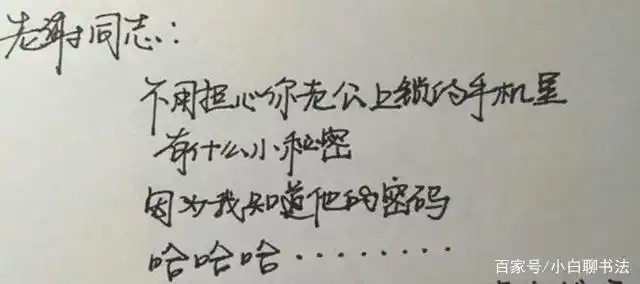 老谢同志：
不用担心你老公上锁的手机里
有什么小秘密
因为我知道他的密码
哈哈哈········
百家号/小白聊书法